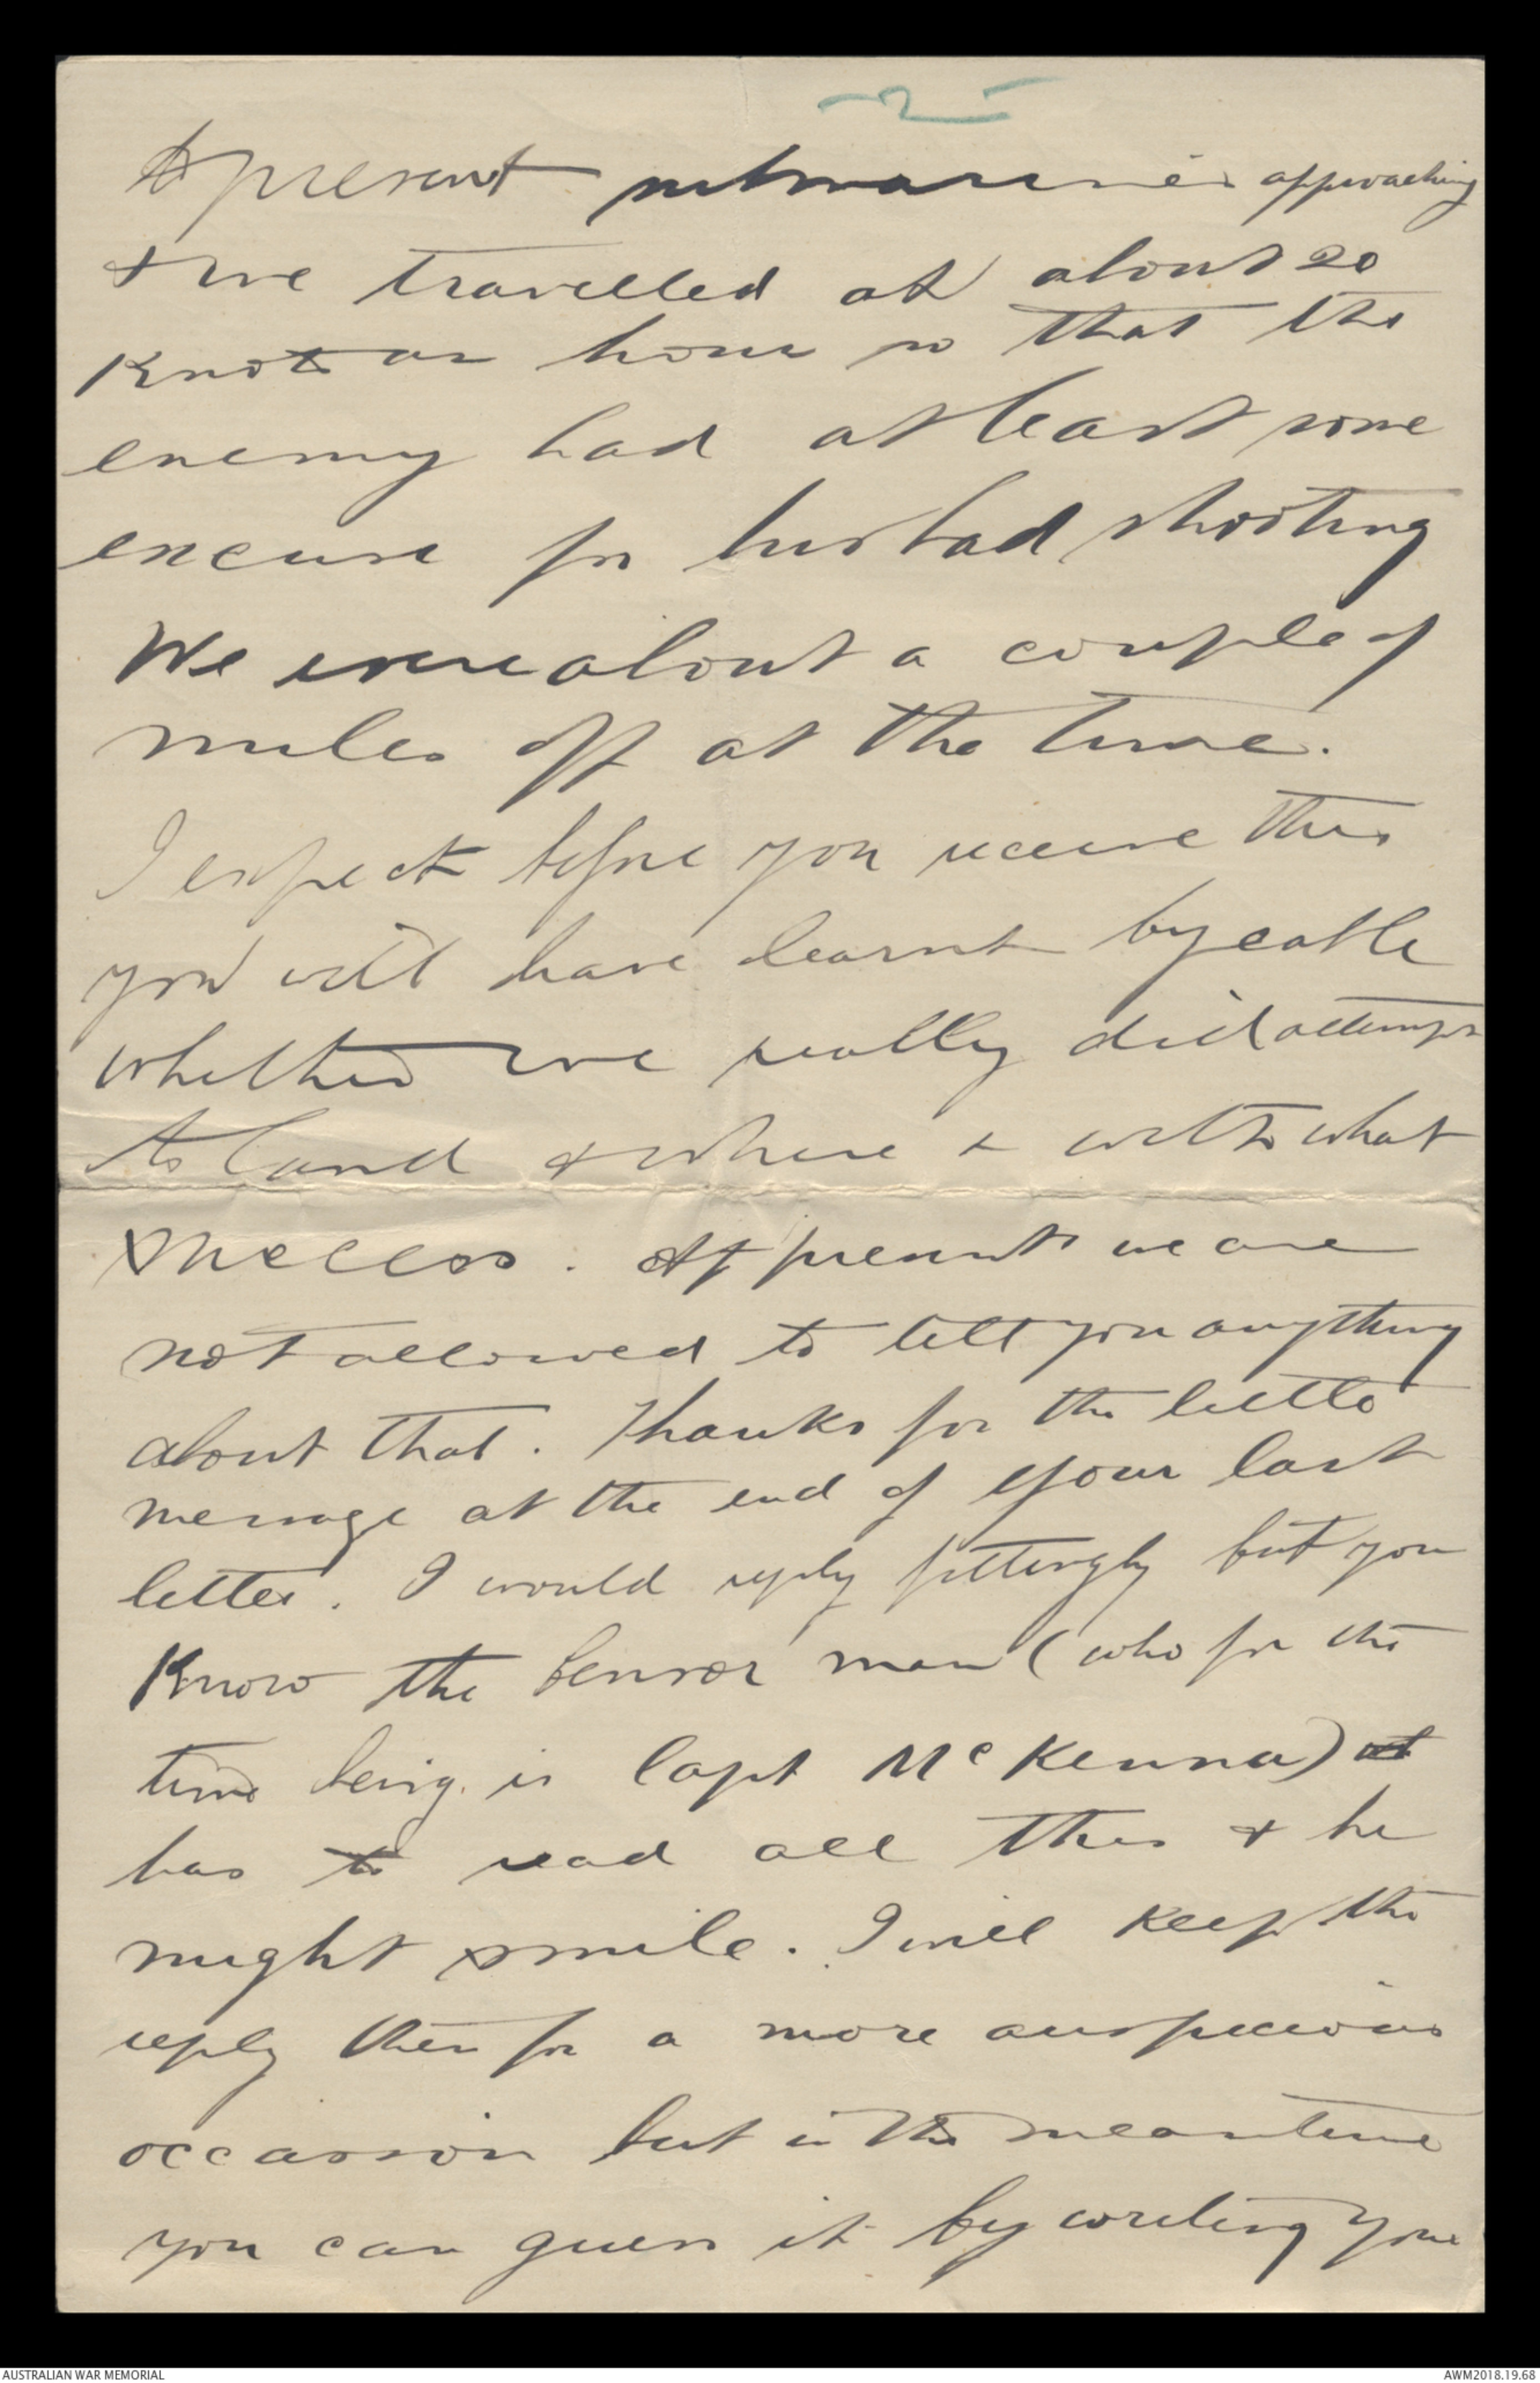 -2-
to prevent submarines approaching
& we travelled at about 20
knots an hour so that the
enemy had at least some
excuse for his bad shooting
We were about a couple of
miles off at the time.
I expect before you receive this
you will have learnt by cable
whether we really did attempt
to land & where & with what
success. At present we are
not allowed to tell you anything
about that. Thanks for the little
message at the end of your last
letter. I would reply fittingly but you
know the Censor man (who for the
time being is Capt McKenna)
has to read all this & he
might smile. I will keep the
reply then for a more auspicious
occasion but in the meantime
you can guess it by
AUSTRALIAN WAR MEMORIAL
AWM2018.19.68